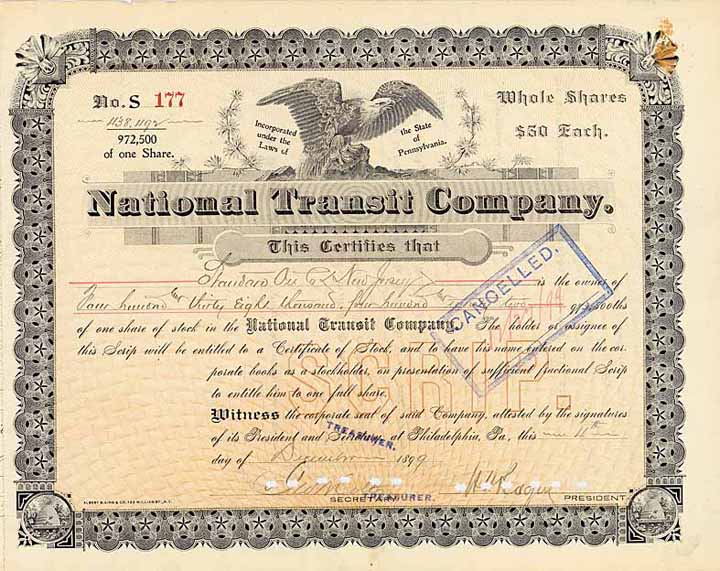 No. S 177
972,500
of one Share.
Incorporated
under the
Laws of
the State
of
Pennsylvania.
Whole Shares
$50 Each.
National Transit Company.
This Certifies that
Standard Oil Co New Jersey is the owner of
Four hundred and thirty eight thousand, four hundred and two 972,500ths
of one share of stock in the National Transit Company. The holder or assignee of
this Scrip will be entitled to a Certificate of Stock, and to have his name entered on the cor-
porate books as a stockholder, on presentation of sufficient fractional Scrip
to entitle him to one full share.
SCRIP.
CANCELLED.
Witness the corporate seal of said Company, attested by the signatures
TREASURER.
of its President and Secretary at Philadelphia, Pa, this
day of December 1899
SECRETARY.
TREASURER.
PRESIDENT.
ALBERT B. KING & CO. 105 WILLIAM ST., N.Y.